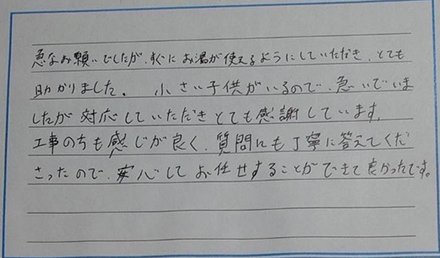 急なお願いでしたが、すぐにお湯が使えるようにしていただき、とても
助かりました。 小さい子供がいるので、急いでいま
したが対応していただきとても感謝しています。
工事のちも感じが良く、質問にも丁寧に答えてくだ
さったので、安心してお任せすることができて良かったです。